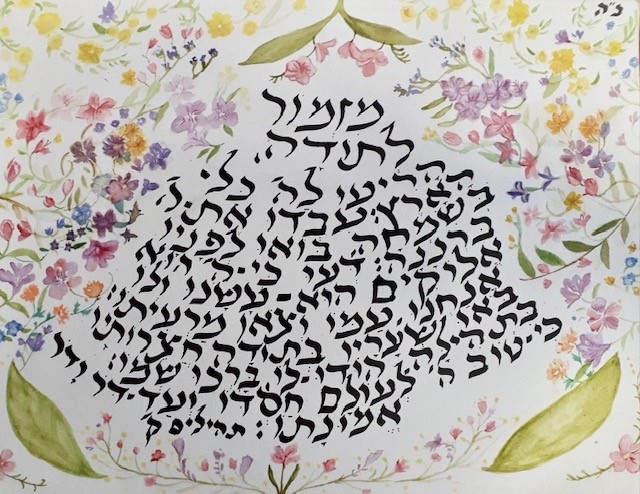 ב"ה
מזמור
לתודה,
הריעו לה' כל
הארץ: עבדו את ה'
בשמחה בואו לפניו
ברננה: דעו כי-ה'
אלקים הוא-עשנו ולו
אנחנו עמו וצאן מרעיתו:
באו שעריו בתודה חצרתיו
בתהילה הודו-לו ברכו שמו:
כי-טוב ה' לעולם חסדו ועד-דר ודר
אמונתו: תהילים ק